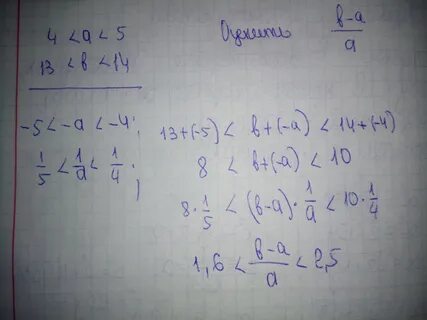 4 < a < 5
13 < в < 14
Оценить (в-a)/a
-5 < -a < -4;
1/5 < 1/a < 1/4;
13+(-5) < в+(-a) < 14+(-4)
8 < в+(-a) < 10
8·1/5 < (в-a)·1/a < 10·1/4
1,6 < (в-a)/a < 2,5